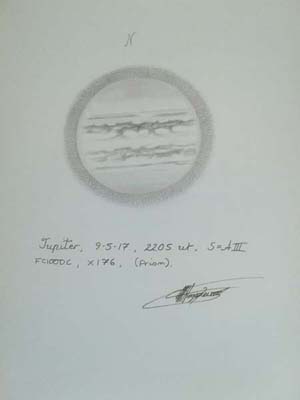 N
Jupiter, 9-5-17, 2205 ut, S=AIII
FC100DC, x176, (Prism).